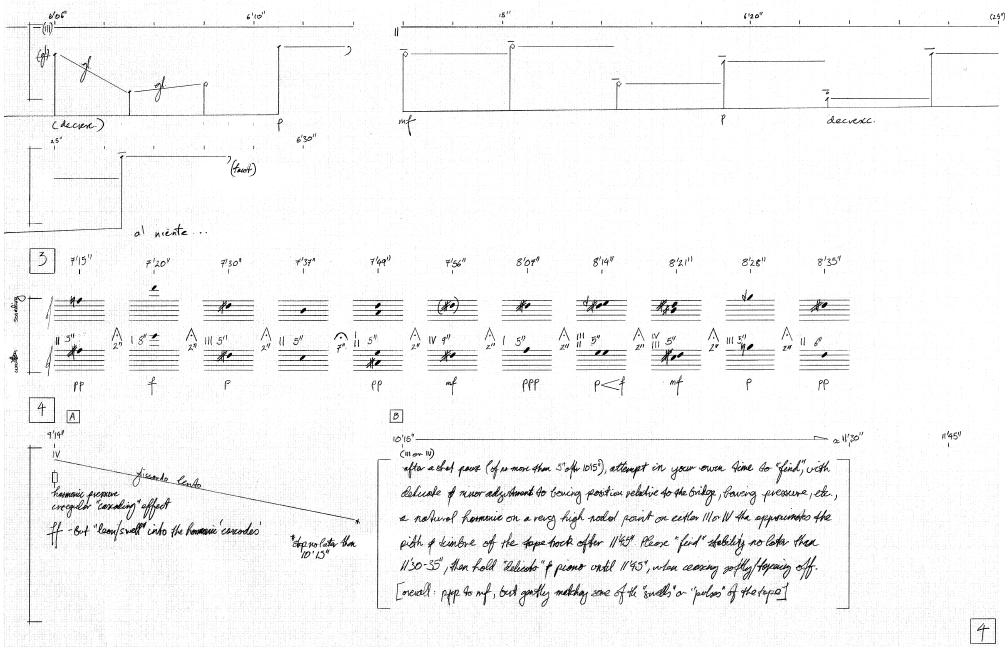 6'06" 6'10" 15" 6'20" (25")
(III) II
gl gl
(decresc.) p mf p decresc.
25" 6'30"
(tacet)
al niente...
3 7'15" 7'20" 7'30" 7'37" 7'49" 7'56" 8'07" 8'14" 8'21" 8'28" 8'35"
sounding
written
II 5" 2" I 8" 2" III 5" 2" II 5" 7" 5" 2" IV 9" 2" I 5" 2" 5" 2" IV III 5" 2" III 5" 2" II 6"
pp f p pp mf ppp p f mf p pp
4 A B
9'14" 10'15" ≈ 11'30" 11'45"
IV (III or IV)
harmonic pressure
irregular "cascading" effect
ff - But "lean/swell" into the harmonic 'cascades'
*stop no later than
10'15"
after a short pause (of no more than 5" after 10'15"), attempt in your own time to "find", with
delicate & minor adjustment to bowing position relative to the bridge, bowing pressure, etc.,
a natural harmonic on a very high nodal point on either III or IV tha approximates the
pitch & timbre of the tape track after 11'45". Please "find" stability no later than
11'30-35", then hold "delicato" & piano until 11'45", when ceasing softly/tapering off.
[overall: ppp to mf, but gently matching some of the "swells" or "pulses" of the tape]
4